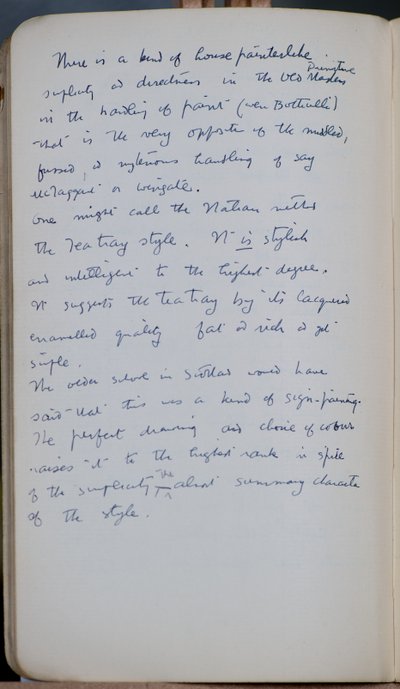 There is a kind of house painterlike
simplicity and directness in the Old Primitive Masters
in the handling of paint (even Botticelli)
that is the very opposite of the muddled,
fussed, and mysterious handling of say
McTaggart or Wingate.
One might call the Italian method
the Teatray style. It is stylish
and intelligent to the highest degree.
It suggests the teatray by its lacquered
enamelled quality fat and rich and yet
simple.
The older school in Scotland would have
said that this was a kind of sign-painting.
The perfect drawing and choice of colour
raises it to the highest rank in spite
of the simplicity the almost summary character
of the style.